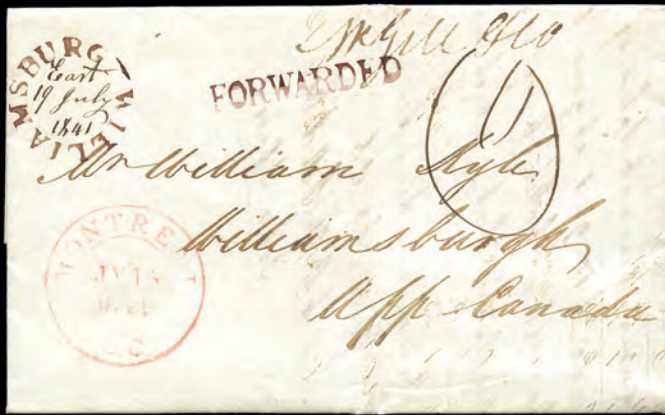 WILLIAMSBURG
East
19 July
1841
FORWARDED
11
Mr William
Williamsburgh
Upp Canada
MONTREAL
JY 15